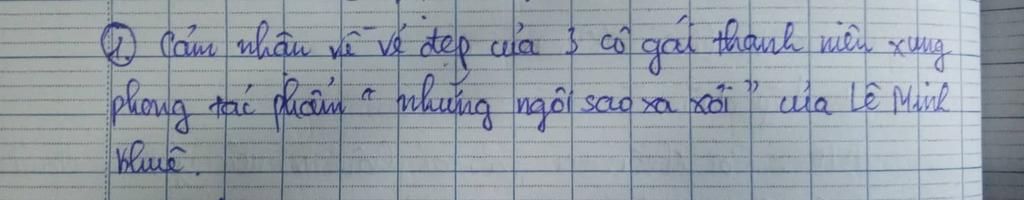 ① Cảm nhận về vẻ đẹp của 3 cô gái thanh niên xung
phong tác phẩm " những ngôi sao xa xôi " của Lê Minh
Khuê.